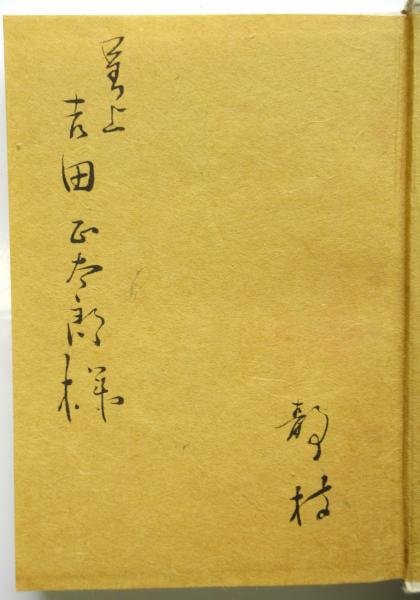 呈上
吉田正太郎様
静枝